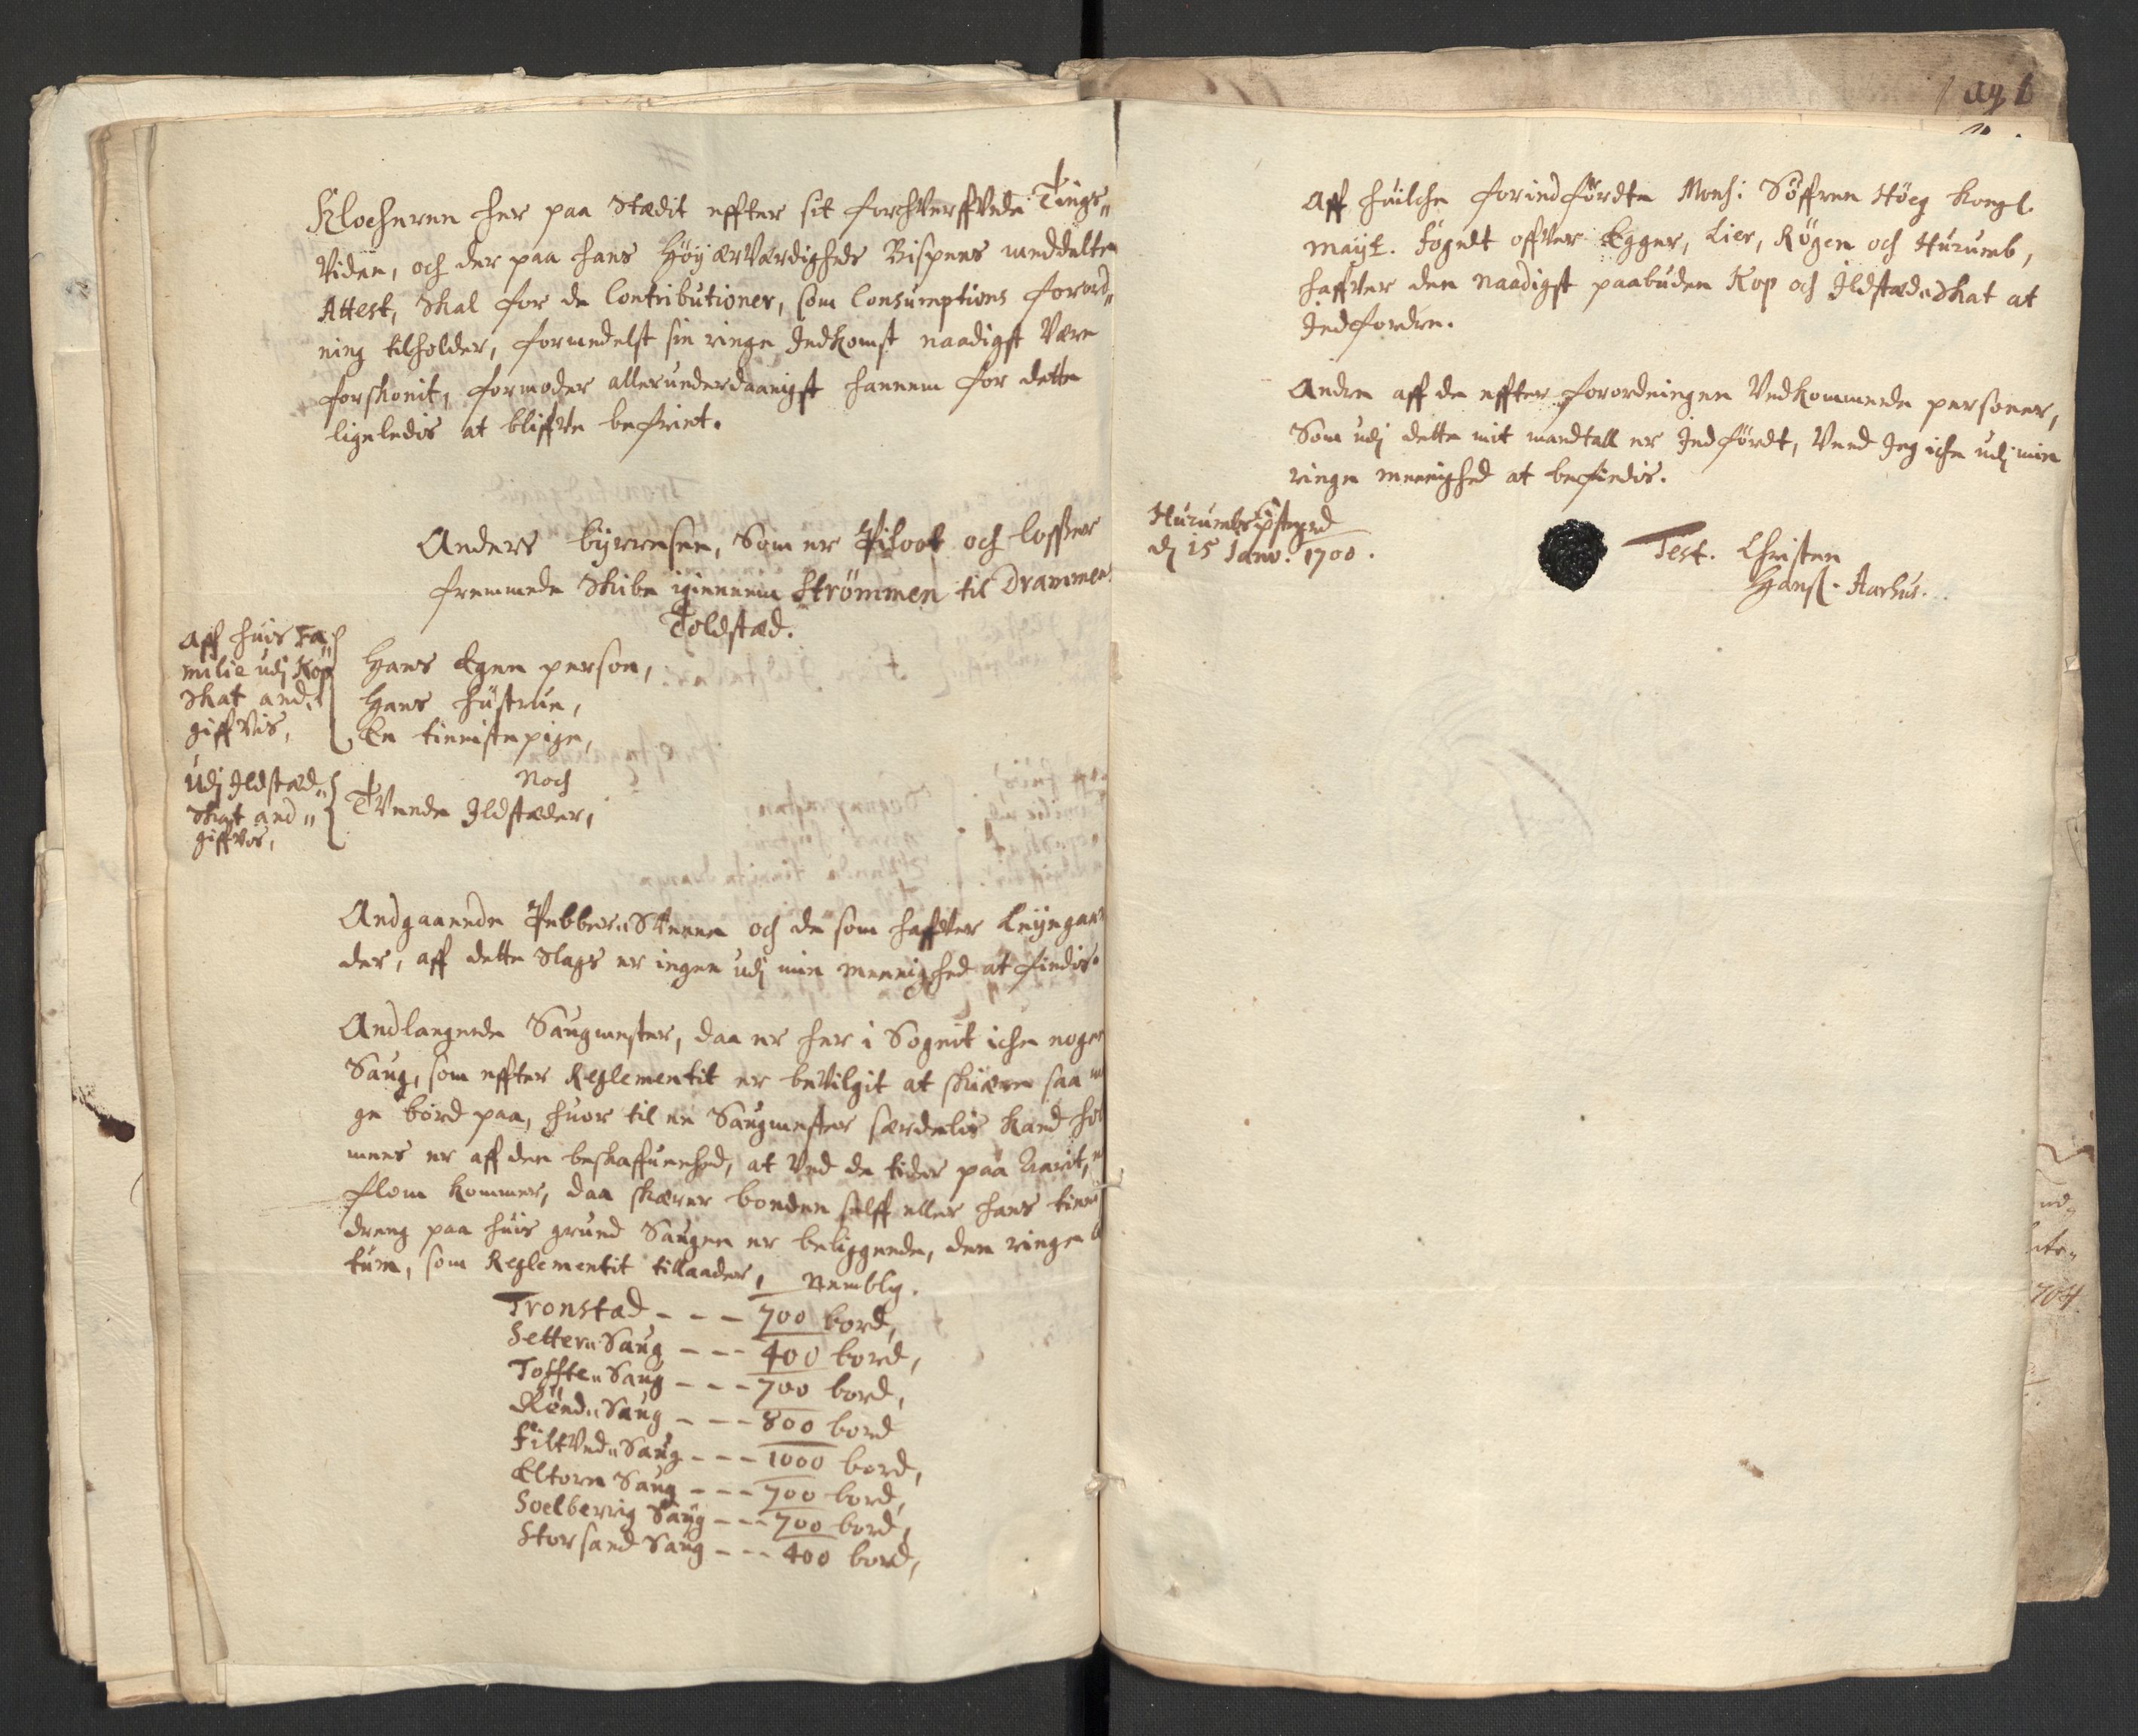 Klocheren her paa Stædit effter sit forhverffvede Tings„
Viden, och der paa hans Høyærværdigheds Bispens meddelte
Attest, skal for de Contributioner, som Consumptions forord„
ning tilholder, formedelst sin ringe Indkomst naadigst være
forskonit, formoder allerunderdaanigst hannem for dette
ligeledis at bliffve befriet.
Anders byrresen, Som er Piloot och losser
fremmede Skibe igiennem Strømmen til Drammens
Toldstæd.
Aff huis Fa„
milie udj Kop
Skat and„
giffvis,
Hans Egen person,
Hans hustrue,
En tienistepige,
Noch
Udj Ildstæd„
Skat and„
giffves,
Tvende Ildstæder,
Andgaaende Pebber Svenne och de som haffver Leyegaar
der, aff dette Slags er ingen udj min meenighed at findis.
Andlangende Saugmester, daa er her i Sognit iche nogen
Saug, som effter Reglementit er bevilgit at skiære saa
ge bord paa, huor til en Saugmester særdelis kand
mens er aff den beskaffuenhed, at ved de tider paa Aarit,
flom kommer, daa skærer bonden selff eller hans
dreng paa huis grund Saugen er beliggende, den ringe
tum, som Reglementit tillaader, Nemblig.
Tronstad - - - 700 bord,
Setter„ Saug - - - 400 bord,
Toffte„ Saug - - - 700 bord,
Rønd„ Saug - - - 800 bord
Filtved„ Saug - - - 1000 bord,
Eltorn Saug - - - 700 bord,
Soelberrig Saug - - - 700 bord,
Storsand Saug - - - 400 bord,
Aff huilche forindførdte Monsr: Søffren Høeg Kongl.
Mayt. Fogelt offver Egger, Lier, Røgen och Hurumb,
haffver den naadigst paabuden Kop och Ildstæd„ Skat at
Indfordre.
Andre aff de effter forordningen Vedkommende personer,
Som udj dette mit mandtall er Indførdt, Veed Jeg iche udj min
ringe meenighed at befindis.
Hurumbs
dj 15 Janv. 1700.
Test. Christen
Hanß. Aarhus.